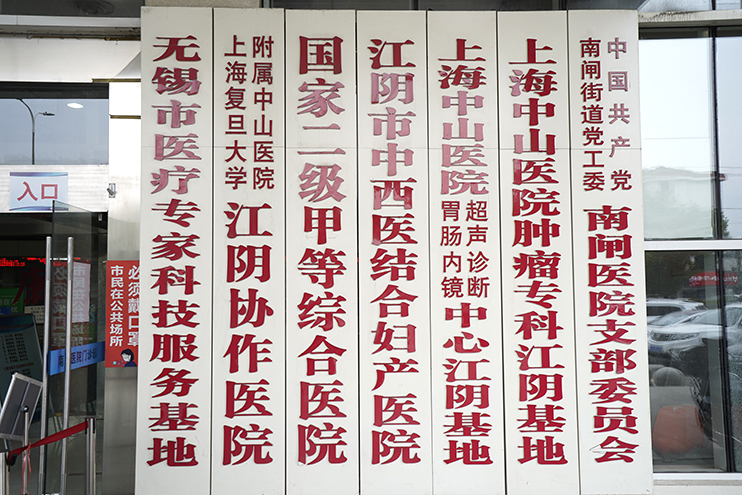 无锡市医疗专家科技服务基地
上海复旦大学
附属中山医院
江阴协作医院
国家二级甲等综合医院
江阴市中西医结合妇产医院
上海中山医院
超声诊断
胃肠内镜
中心江阴基地
上海中山医院肿瘤专科江阴基地
中国共产党
南闸街道党工委
南闸医院支部委员会
入口
市民在公共场所
必须戴口罩